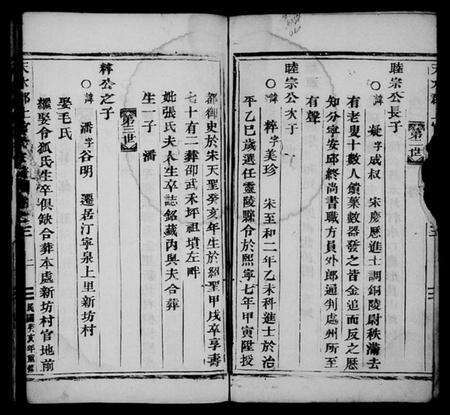 第二世
睦宗公長子
○諱 凝字咸叔 宋慶歷進士調銅陵尉秩滿去
有老叟十數人饋菓數器發之皆金追而反之歷
知分寧安邱終尚書職方員外郎通判處州所至
有聲
睦宗公次子
○諱 稡字美珍 宋至和二年乙未科進士於治
平乙巳歲選任靈陵縣令於熙寧七年甲寅陞授
都御史於宋天聖癸亥年生於紹聖甲戌卒享壽
七十有二葬御武禾坪祖墳左畔
妣張氏夫人生卒誌銘藏內與夫合葬
生一子 潘
第三世
稡公之子
○諱 潘字谷明 遷居汀寧泉上里新坊村
娶毛氏
繼娶令狐氏生卒俱缺合葬本處新坊村官地前